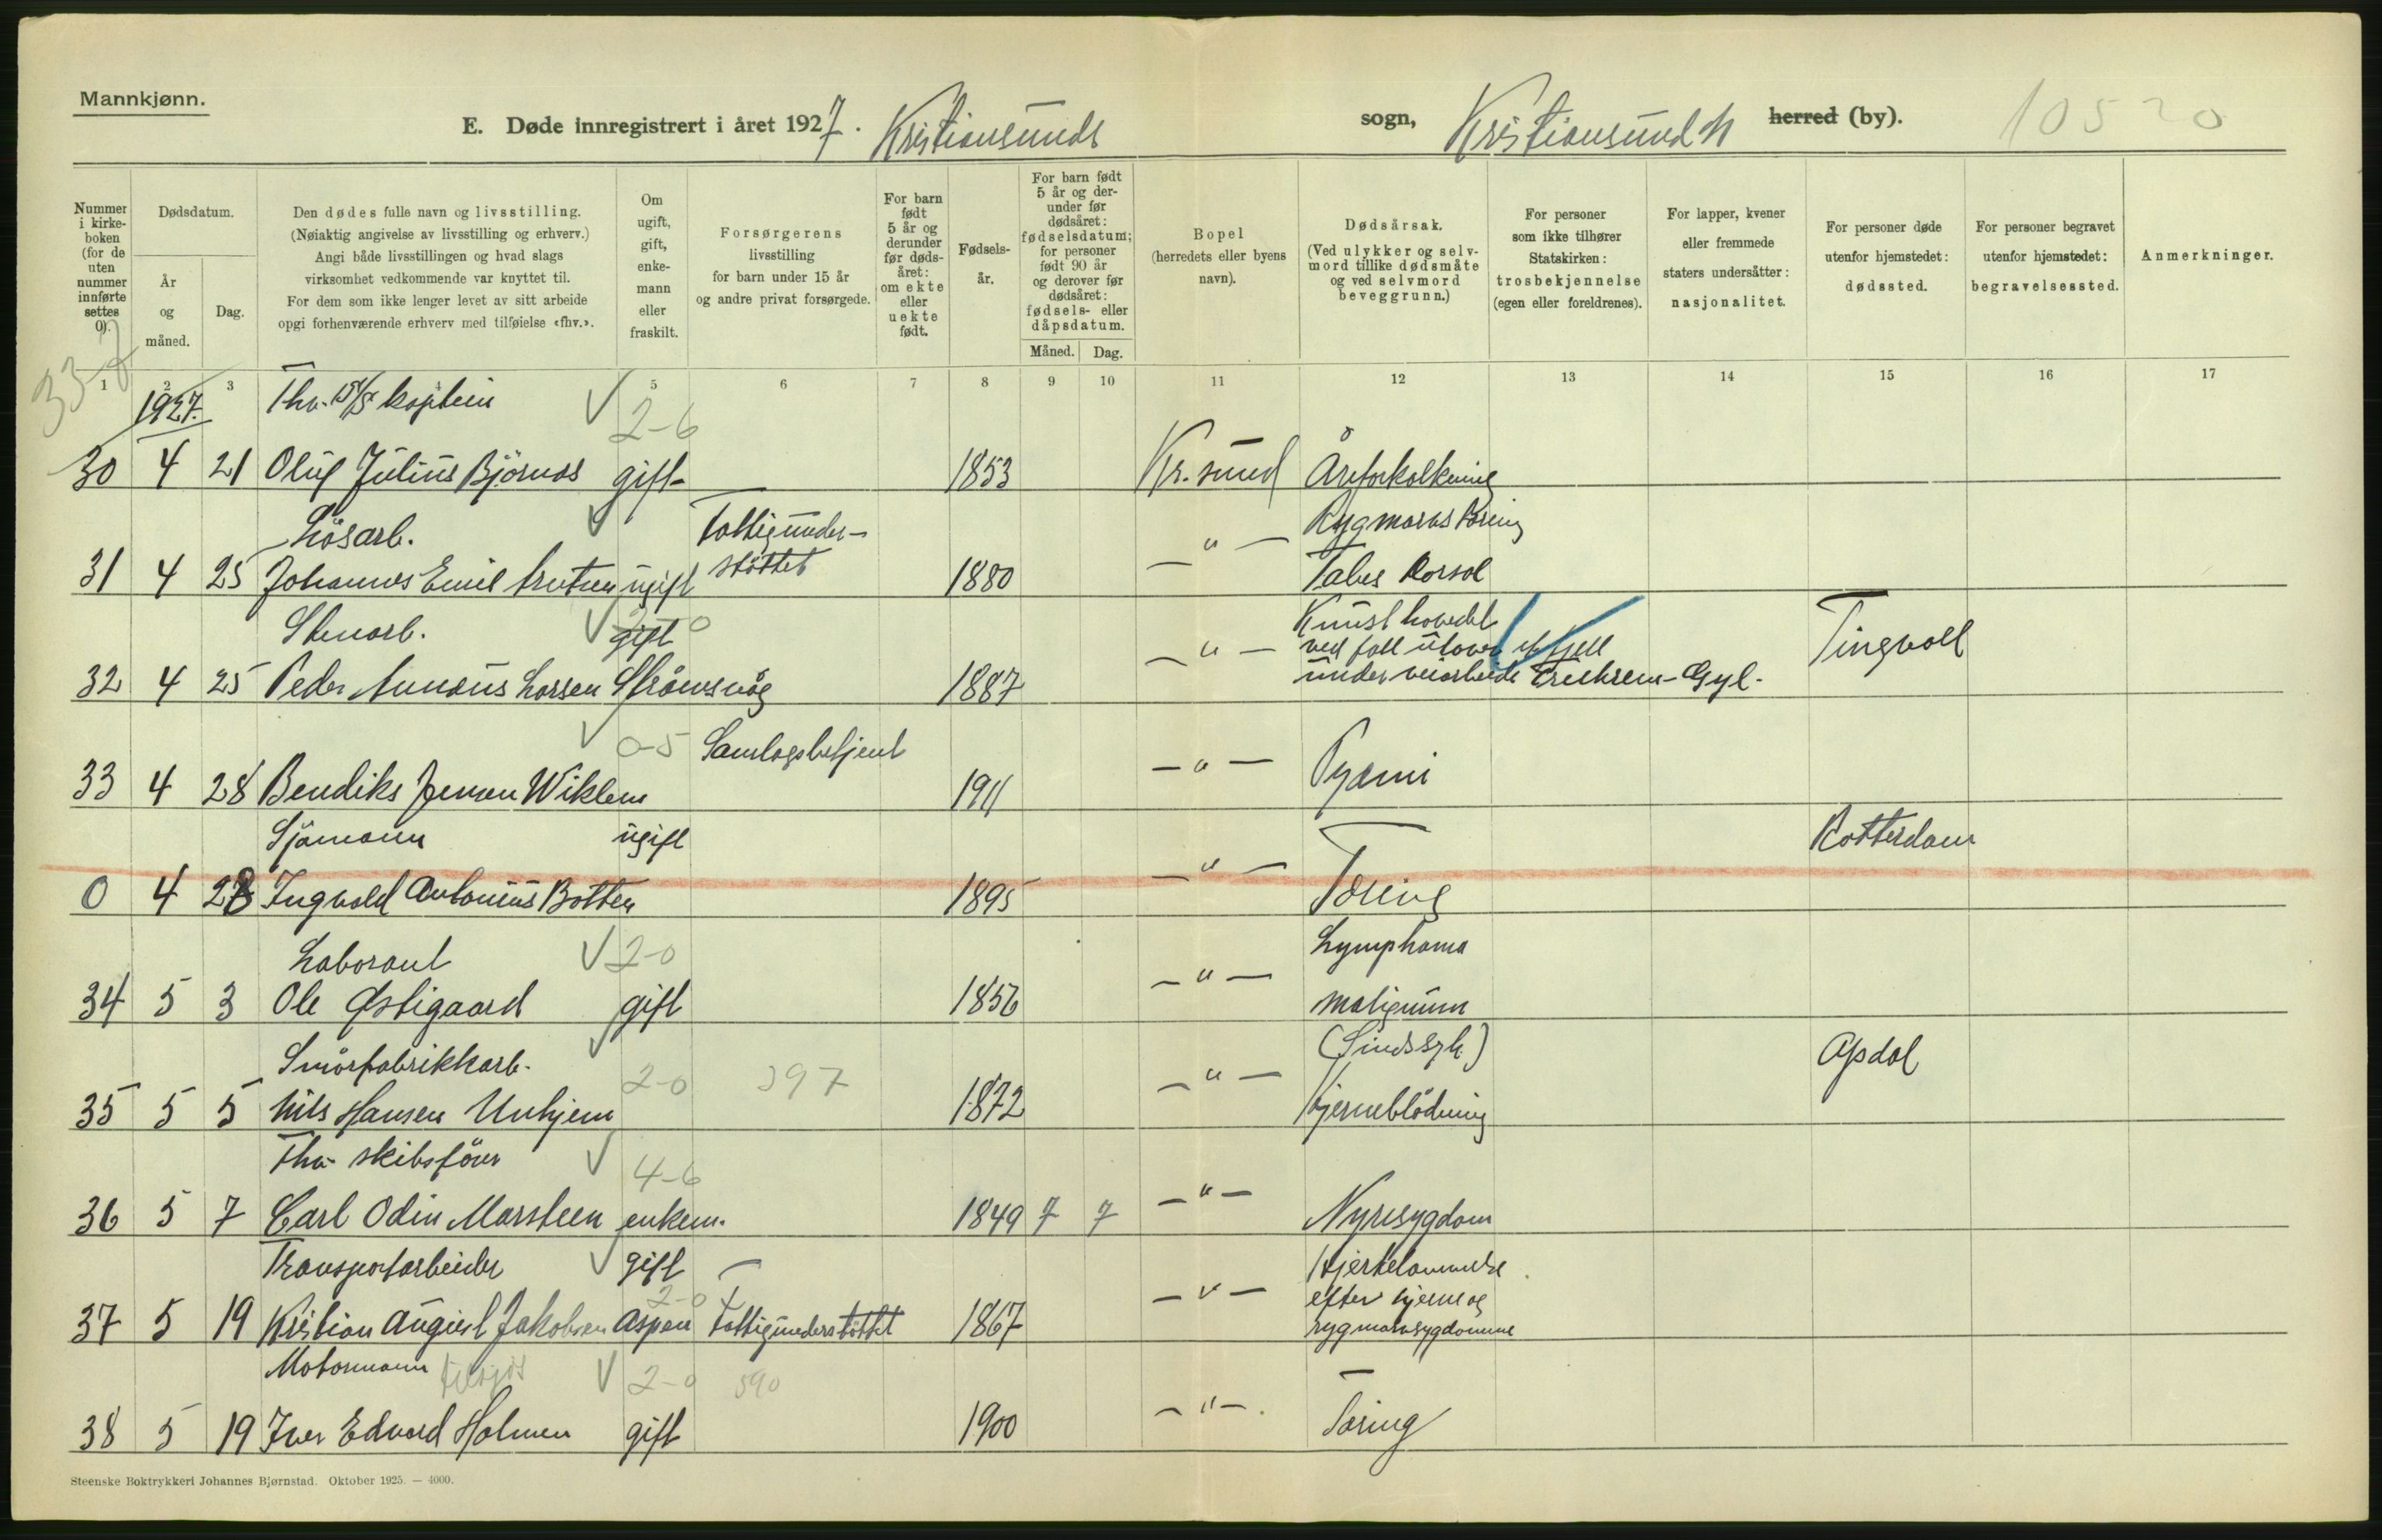 Mannkjønn.
E. Døde innregistrert i året 1927. Kristiansunds sogn, Kristiansund N herred (by). 10520
Nummer i kirkeboken (for de uten nummer innførte settes 0).
Dødsdatum.
År og måned.
Dag.
Den dødes fulle navn og livsstilling.
(Nøiaktig angivelse av livsstilling og erhverv.)
Angi både livsstillingen og hvad slags
virksomhet vedkommende var knyttet til.
For dem som ikke lenger levet av sitt arbeide
opgi forhenværende erhverv med tilføielse «fhv.».
Om ugift, gift, enkemann eller fraskilt.
Forsørgerens
livsstilling
for barn under 15 år
og andre privat forsørgede.
For barn født 5 år og derunder før dødsåret: om ekte eller uekte født.
Fødselsår.
For barn født 5 år og derunder før dødsåret: fødselsdatum; for personer født 90 år og derover før dødsåret: fødsels- eller dåpsdatum.
Måned. Dag.
Bopel
(herredets eller byens navn).
Dødsårsak.
(Ved ulykker og selvmord tillike dødsmåte og ved selvmord beveggrunn.)
For personer som ikke tilhører Statskirken: trosbekjennelse (egen eller foreldrenes).
For lapper, kvener eller fremmede staters undersåtter: nasjonalitet.
For personer døde utenfor hjemstedet: dødssted.
For personer begravet utenfor hjemstedet: begravelsessted.
Anmerkninger.
1 2 3 4 5 6 7 8 9 10 11 12 13 14 15 16 17
1927. Fhv. kaptein 2-6
30 4 21 Oluf Julius Bjørnås gift 1853 Kr.sund Åreforkalkning
Løsarb. Fattigunder- Rygmarvs tæring
31 4 25 Johannes Emil ugift støttet 1880 - " - Tabes Dorsal
Stenarb. gift 0 Knust hovedet
ved fall utover et fjell Tingvoll
32 4 25 Peder Larsen Strømsvåg 1887 - " - under veiarbeide Gyl.
0-5 Samlagsbetjent
33 4 28 Bendiks Jensen Wiklem 1911 - " - Pyæmi
Sjømann ugift Rotterdam
0 4 28 Ingvald Antonius Botten 1895 - " - Tæring
Laborant 2-0 Lymphoma
34 5 3 Ole Østigaard gift 1856 - " - malignum
Smørfabrikkarb. 2-0 397 (Sindssyk) Opdøl
35 5 5 Nils Hansen Unhjem 1872 - " - Hjerneblødning
Fhv. skibsfører 4-6
36 5 7 Carl Odin Marsteen enkem. 1849 7 7 - " - Nyresygdom
Transportarbeider gift Hjertelammelse
2-0 efter hjerne og
37 5 19 Kristian August Jakobsen Aspen Fattigunderstøttet 1867 - " - rygmarvsygdomme
Motormann 2-0 590
38 5 19 Iver Edvard Holmen gift 1900 - " - Tæring
Steenske Boktrykkeri Johannes Bjørnstad. Oktober 1925. — 4000.